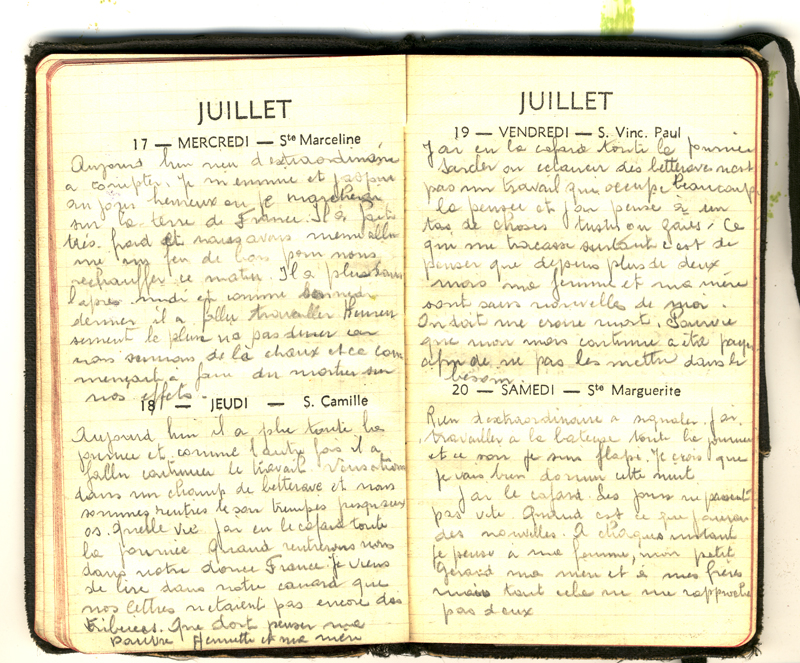 JUILLET
17 — MERCREDI — Ste Marceline
Aujourd hui rien d'extraordinaire
a compter. Je m'ennuie et j'aspire
au jour heureux ou je marcherai
sur la terre de France. Il a fait
très froid et nous avons même allu
mé un feu de bois pour nous
rechauffer ce matin. Il a plu dans
l'après midi et comme
dernier il a fallu travailler Heureu
sement la pluie n'a pas durer car
nous sommes de la chaux et ce com
mençait a faire du mortier sur
nos effets.
18 — JEUDI — S. Camille
Aujourd hui il a plu toute la
journée et comme l'autre fois il a
fallu continuer le travail. Nous étions
dans un champ de betterave et nous
sommes rentrés le soir trempés jusqu'aux
os. Quelle vie j'ai eu le cafard toute
la journée Quand rentrerons nous
dans notre douce France. Je viens
de lire dans notre canard que
nos lettres n'etaient pas encore dis
tribuées. Que doit penser ma
pauvre Henriette et ma mère
JUILLET
19 — VENDREDI — S. Vinc. Paul
J'ai eu le cafard toute la journée
Sarcler ou eclaircir des betteraves n'est
pas un travail qui occupe beaucoup
la pensée et j'ai pensé à un
tas de choses triste ou gaies. Ce
qui me tracasse surtout c'est de
penser que depuis plus de deux
mois ma femme et ma mère
sont sans nouvelles de moi.
On doit me croire mort. Pourvu
que mon mois continue a été payer
afin de ne pas les mettre dans le
besoin.
20 — SAMEDI — Ste Marguerite
Rien d'extraordinaire a signaler. J'ai
travailler à la bateuse toute la journée
et ce soir je suis flapi. Je crois que
je vais bien dormir cette nuit
J'ai le cafard. Les jours ne passent
pas vite. Quand est ce que j'aurai
des nouvelles. A chaques instant
je pense à ma femme, mon petit
Gérard ma mère et à mes frères
mais tout cela ne me rapproche
pas d'eux